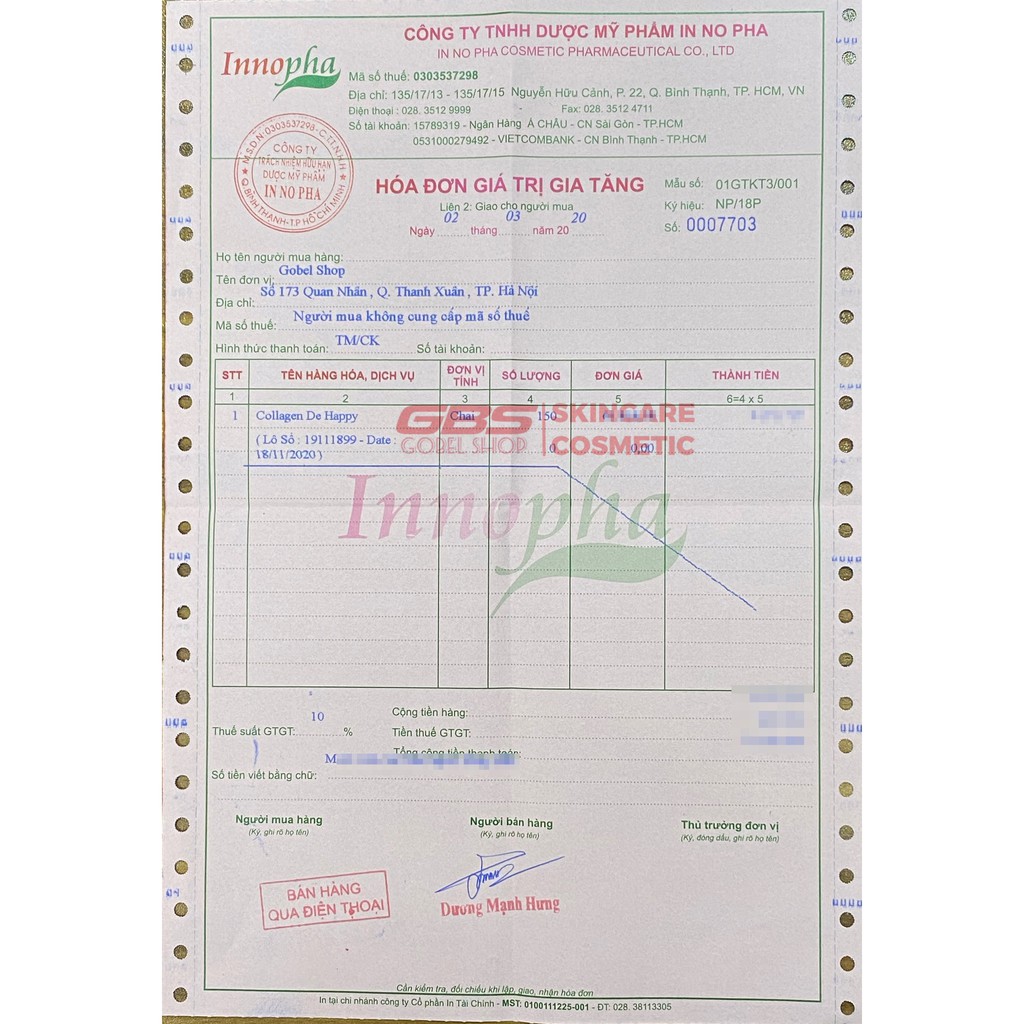 CÔNG TY TNHH DƯỢC MỸ PHẨM IN NO PHA
IN NO PHA COSMETIC PHARMACEUTICAL CO., LTD
Innopha
Mã số thuế: 0303537298
Địa chỉ: 135/17/13 - 135/17/15 Nguyễn Hữu Cảnh, P. 22, Q. Bình Thạnh, TP. HCM, VN
Điện thoại : 028. 3512 9999 - Fax: 028. 3512 4711
Số tài khoản: 15789319 - Ngân Hàng Á CHÂU - CN Sài Gòn - TP.HCM
0531000279492 - VIETCOMBANK - CN Bình Thạnh - TP.HCM
M.S.D.N:0303537298-C.T.T.N.H.H
CÔNG TY
TRÁCH NHIỆM HỮU HẠN
DƯỢC MỸ PHẨM
IN NO PHA
Q.BÌNH THẠNH-T.P HỒ CHÍ MINH
HÓA ĐƠN GIÁ TRỊ GIA TĂNG
Mẫu số: 01GTKT3/001
Liên 2: Giao cho người mua
Ký hiệu: NP/18P
Ngày 02 tháng 03 năm 20 20
Số: 0007703
Họ tên người mua hàng:
Tên đơn vị: Gobel Shop
Địa chỉ: Số 173 Quan Nhân , Q. Thanh Xuân , TP. Hà Nội
Mã số thuế: Người mua không cung cấp mã số thuế
Hình thức thanh toán: TM/CK Số tài khoản:
STT TÊN HÀNG HÓA, DỊCH VỤ ĐƠN VỊ TÍNH SỐ LƯỢNG ĐƠN GIÁ THÀNH TIỀN
1 2 3 4 5 6=4 x 5
1 Collagen De Happy Chai 150
( Lô Số : 19111899 - Date : 0 0,00
18/11/2020 )
GBS SKINCARE
GOBEL SHOP COSMETIC
Innopha
Cộng tiền hàng:
Thuế suất GTGT: 10 % Tiền thuế GTGT:
Tổng cộng tiền thanh toán:
Số tiền viết bằng chữ: M
Người mua hàng Người bán hàng Thủ trưởng đơn vị
(Ký, ghi rõ họ tên) (Ký, ghi rõ họ tên) (Ký, đóng dấu, ghi rõ họ tên)
BÁN HÀNG
QUA ĐIỆN THOẠI
Dương Mạnh Hưng
Cần kiểm tra, đối chiếu khi lập, giao, nhận hóa đơn
In tại chi nhánh công ty Cổ phần In Tài Chính - MST: 0100111225-001 - ĐT: 028. 38113305